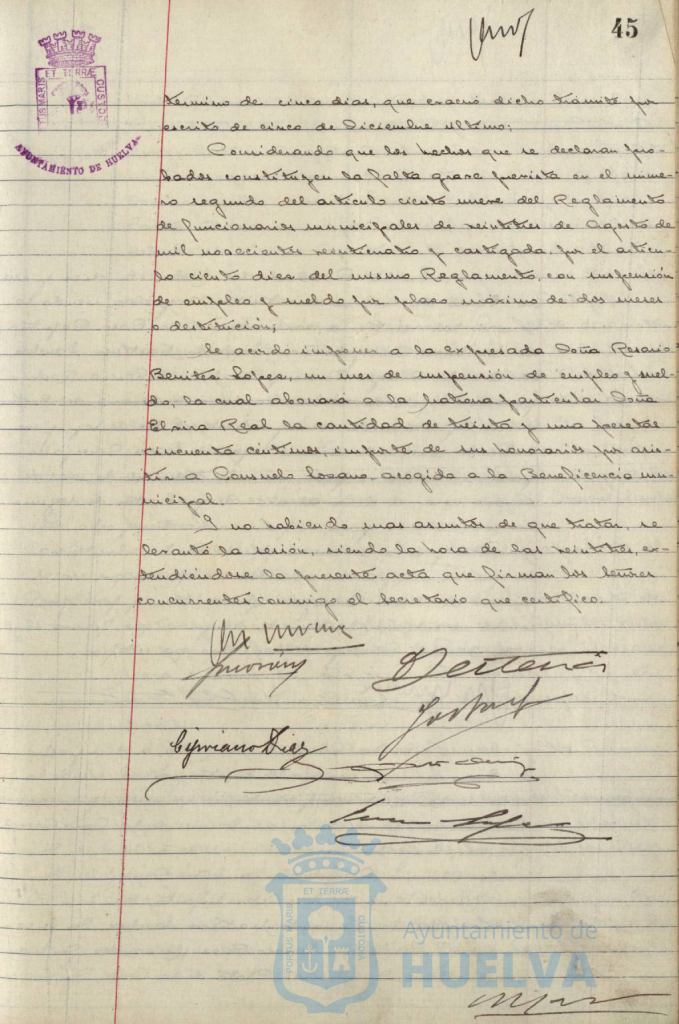 45
PORTUS MARIS ET TERRÆ CUSTODIA
AYUNTAMIENTO DE HUELVA
término de cinco dias, que evacuó dicho trámite por
escrito de cinco de Diciembre último;
Considerando que los hechos que se declaran pro-
bados constituyen la falta grave prevista en el nume-
ro segundo del articulo ciento nueve del Reglamento
de funcionarios municipales de veintitres de Agosto de
mil novecientos veinticuatro y castigada, por el articu-
lo ciento diez del mismo Reglamento, con suspensión
de empleo y sueldo por plazo máximo de dos meses
o destitución;
Se acordó imponer a la expresada Doña Rosario
Benitez Lopez, un mes de suspensión de empleo y suel-
do, la cual abonará a la matrona particular Doña
Elvira Real la cantidad de treinta y una pesetas
cincuenta céntimos, importe de sus honorarios por asis-
tir a Consuelo Lozano, acogida a la Beneficencia mu-
nicipal.
Y no habiendo mas asuntos de que tratar, se
levantó la sesión, siendo la hora de las veintitres, ex-
tendiéndose la presente acta que firman los señores
concurrentes conmigo el secretario que certifico.
Cipriano Diaz
PORTUS MARIS ET TERRÆ CUSTODIA
Ayuntamiento de
HUELVA